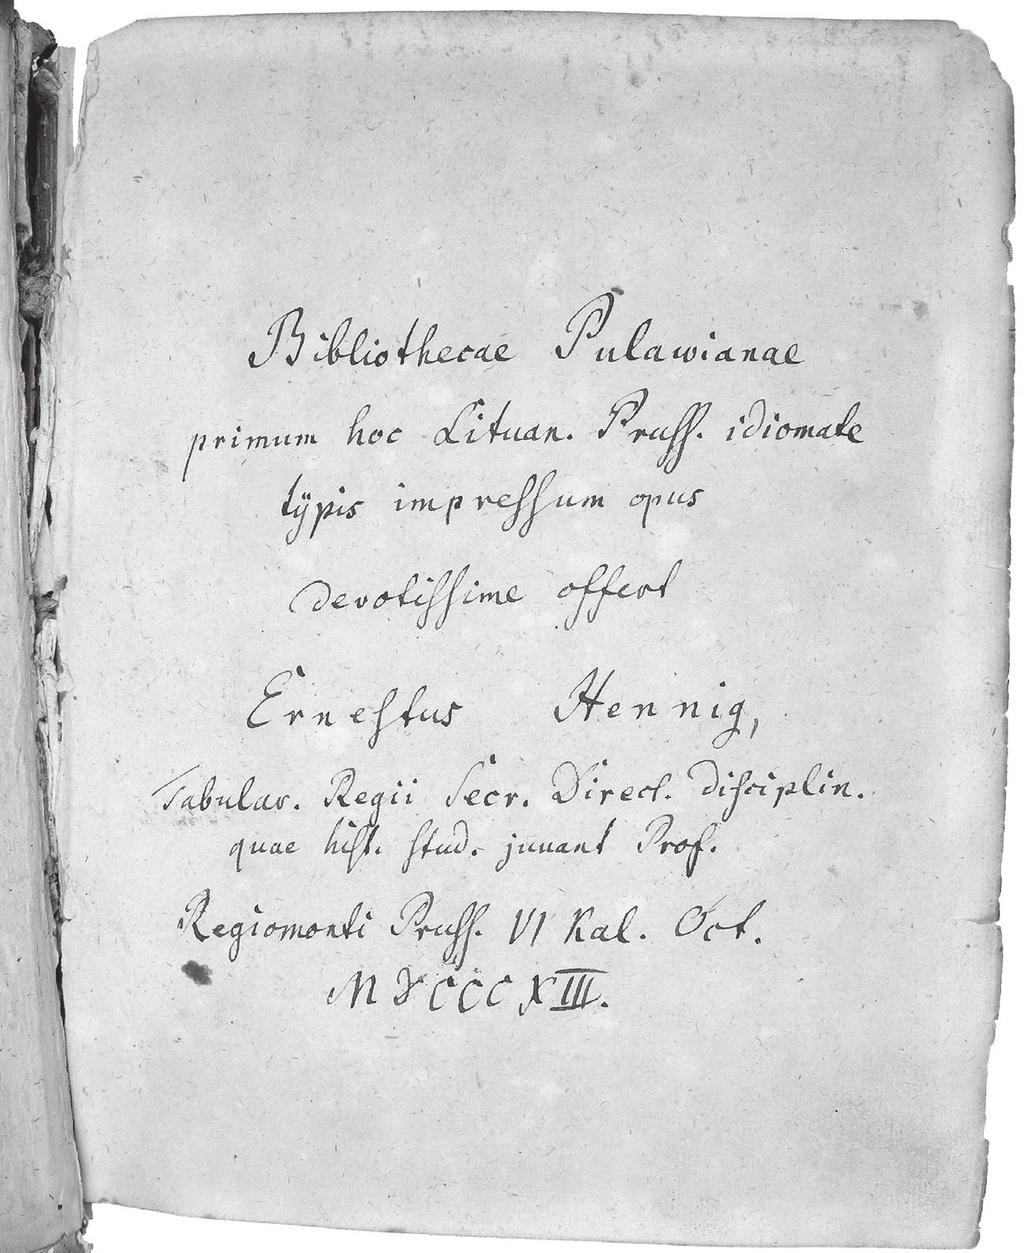 Bibliothecae Pulawianae
primum hoc Lituan. Pruss. idiomate
tÿpis impressum opus
devotissime offert
Ernestus Hennig,
Tabular. Regii Secr. Direct. disciplin.
quae hist. stud. juvant Prof.
Regiomonti Pruss. VI Kal. Oct.
MDCCCXIII.